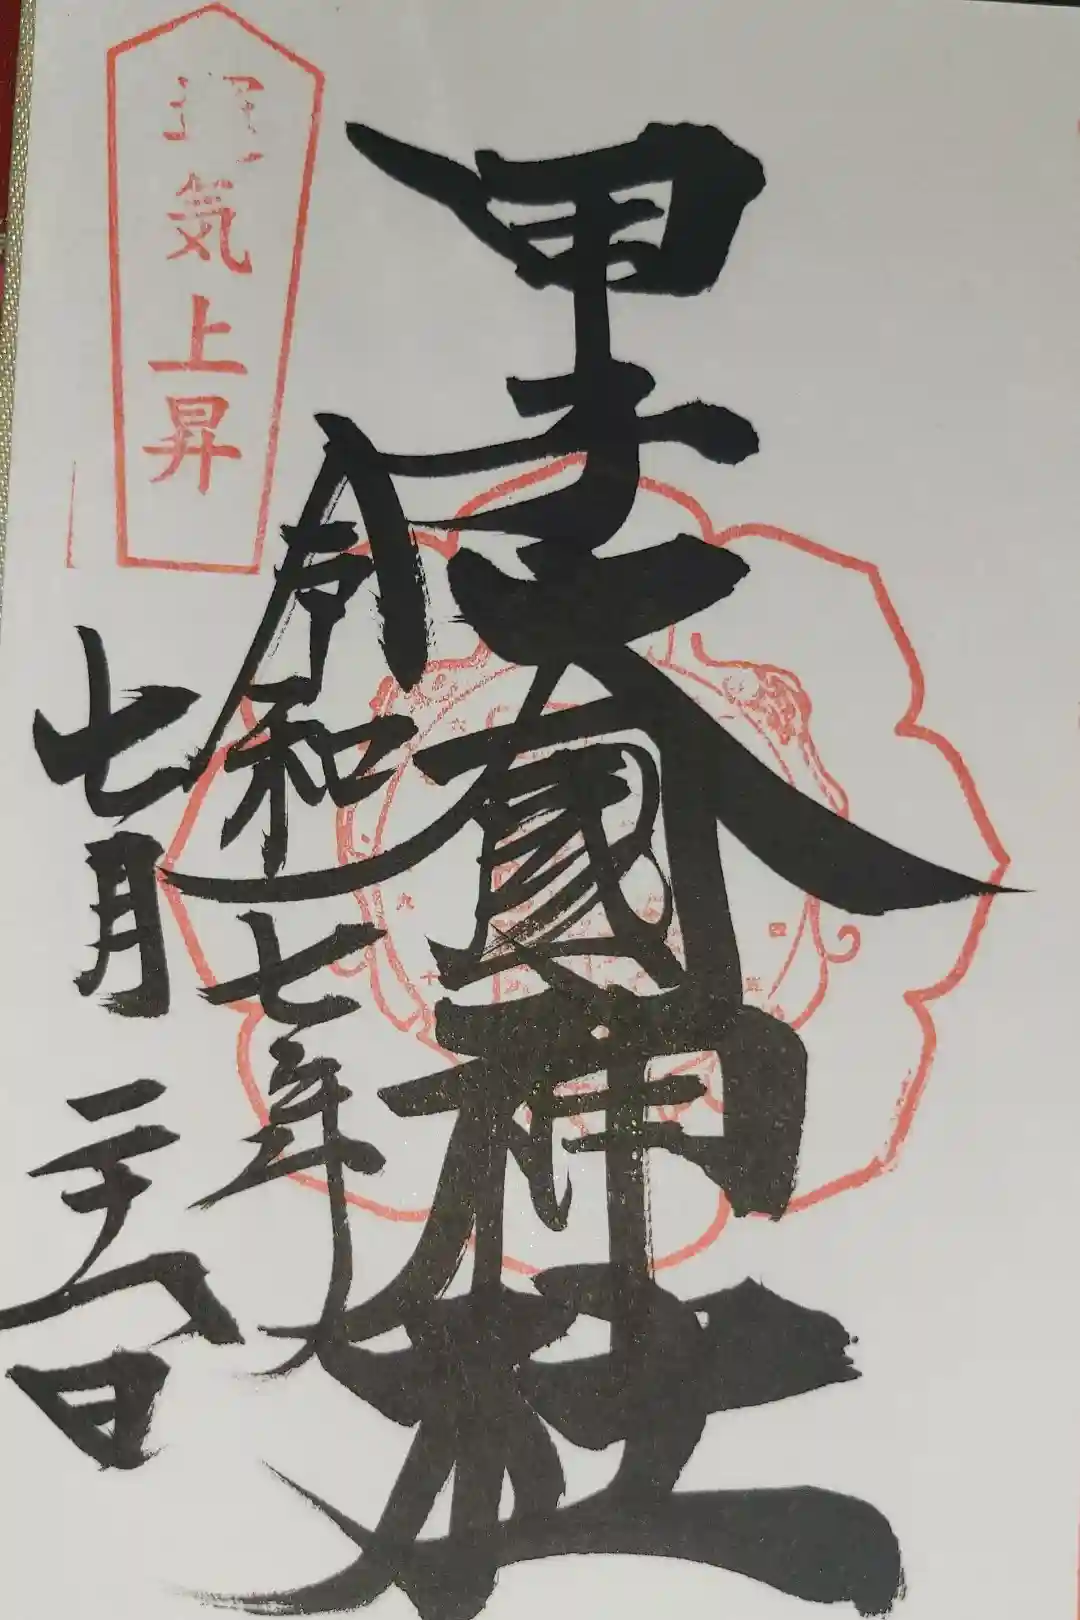 甲子大國神社
令和七年
七月二十六日
運気上昇